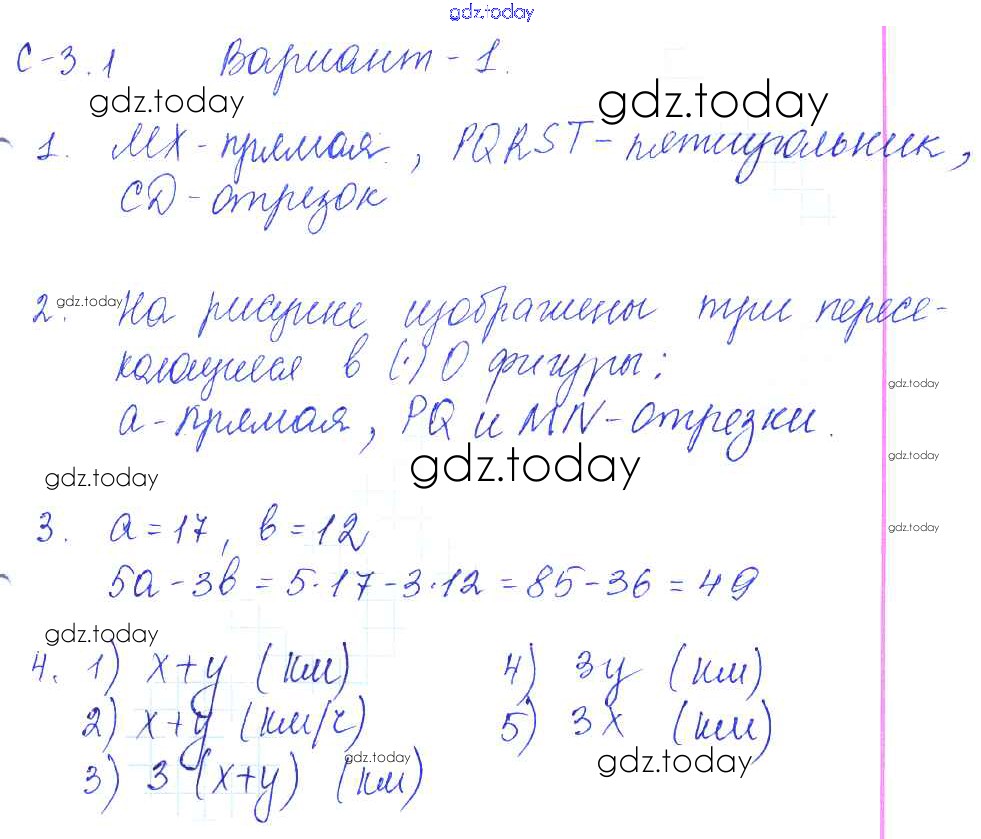 gdz.today
С-3.1 Вариант-1.
gdz.today gdz.today
1. MX-прямая, PQRST-пятиугольник,
CD-отрезок
2. gdz.today На рисунке изображены три пересе-
кающиеся в (·) O фигуры:
gdz.today
a-прямая, PQ и MN-отрезки.
gdz.today
gdz.today gdz.today
3. a=17, b=12
gdz.today
5a-3b=5·17-3·12=85-36=49
gdz.today
4. 1) x+y (км) 4) 3y (км)
2) x+y (км/ч) 5) 3x (км)
gdz.today gdz.today
3) 3 (x+y) (км)